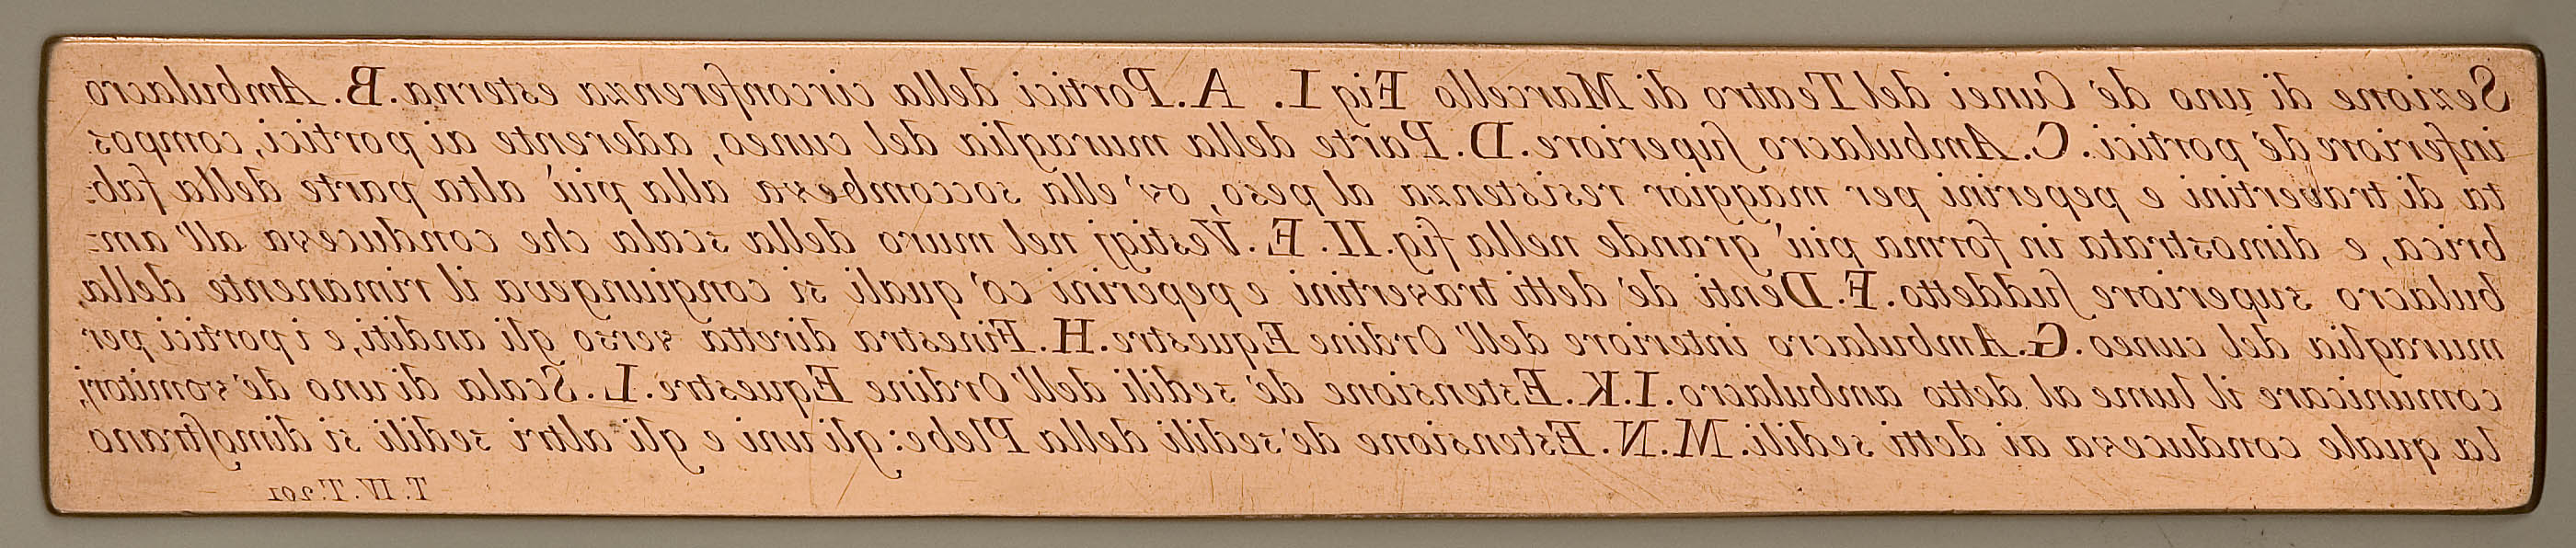 Sezione di uno de' Cunei del Teatro di Marcello Fig I. A. Portici della circonferenza esterna. B. Ambulacro
inferiore de' portici. C. Ambulacro ſuperiore. D. Parte della muraglia del cuneo, aderente ai portici, compos
ta di travertini e peperini per maggior resistenza al peso, ov' ella soccombeva alla più alta parte della fab:
brica, e dimostrata in forma più grande nella fig. II. E. Vestigj nel muro della scala che conduceva all' am:
bulacro superiore ſuddetto. F. Denti de' detti travertini e peperini co' quali si congiungeva il rimanente della,
muraglia del cuneo. G. Ambulacro interiore dell' Ordine Equestre. H. Finestra diretta verso gli anditi, e i portici per
comunicare il lume al detto ambulacro. I.K. Estensione de' sedili dell' Ordine Equestre. L. Scala di uno de' vomitorj,
la quale conduceva ai detti sedili. M.N. Estensione de' sedili della Plebe: gli uni e gli altri sedili si dimoſtrano
T. IV. T. 201